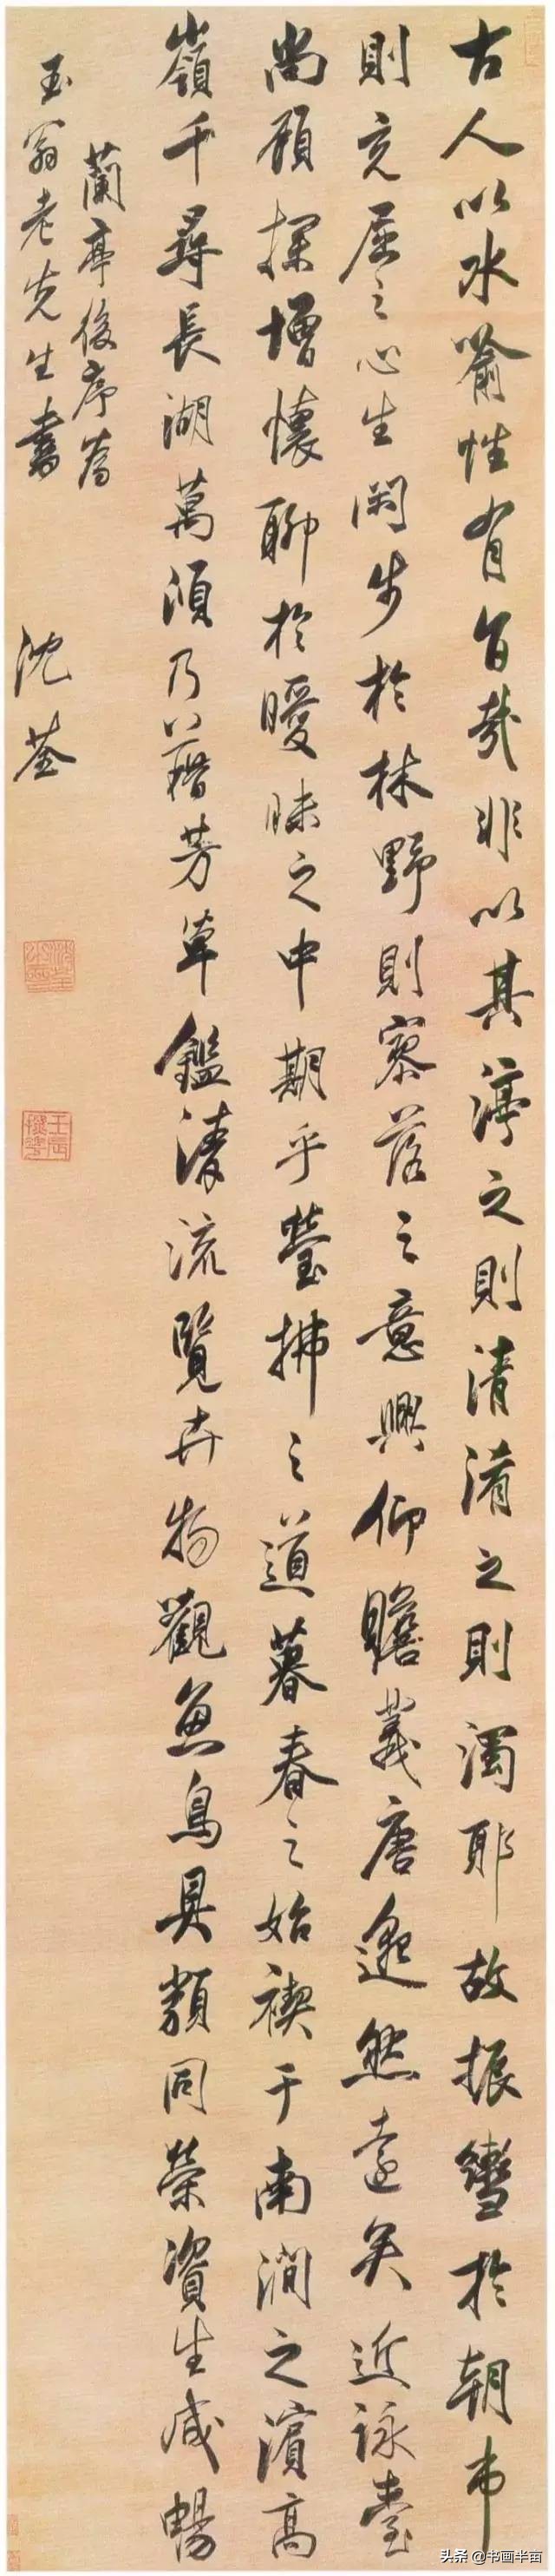 古人以水喻性有旨哉非以其渟之則清淆之則濁耶故振轡於朝市
則充屈之心生閑步於林野則寥落之意興仰瞻羲唐邈然遠矣近詠臺
尚顧探增懷聊於曖昧之中期乎瑩拂之道暮春之始禊于南澗之濱高
嶺千尋長湖萬頃乃藉芳草鑑清流覽卉物觀魚鳥具類同榮資生咸暢
蘭亭後序為
玉翁老先生書
沈荃
壬辰探花
头条 @书画半亩